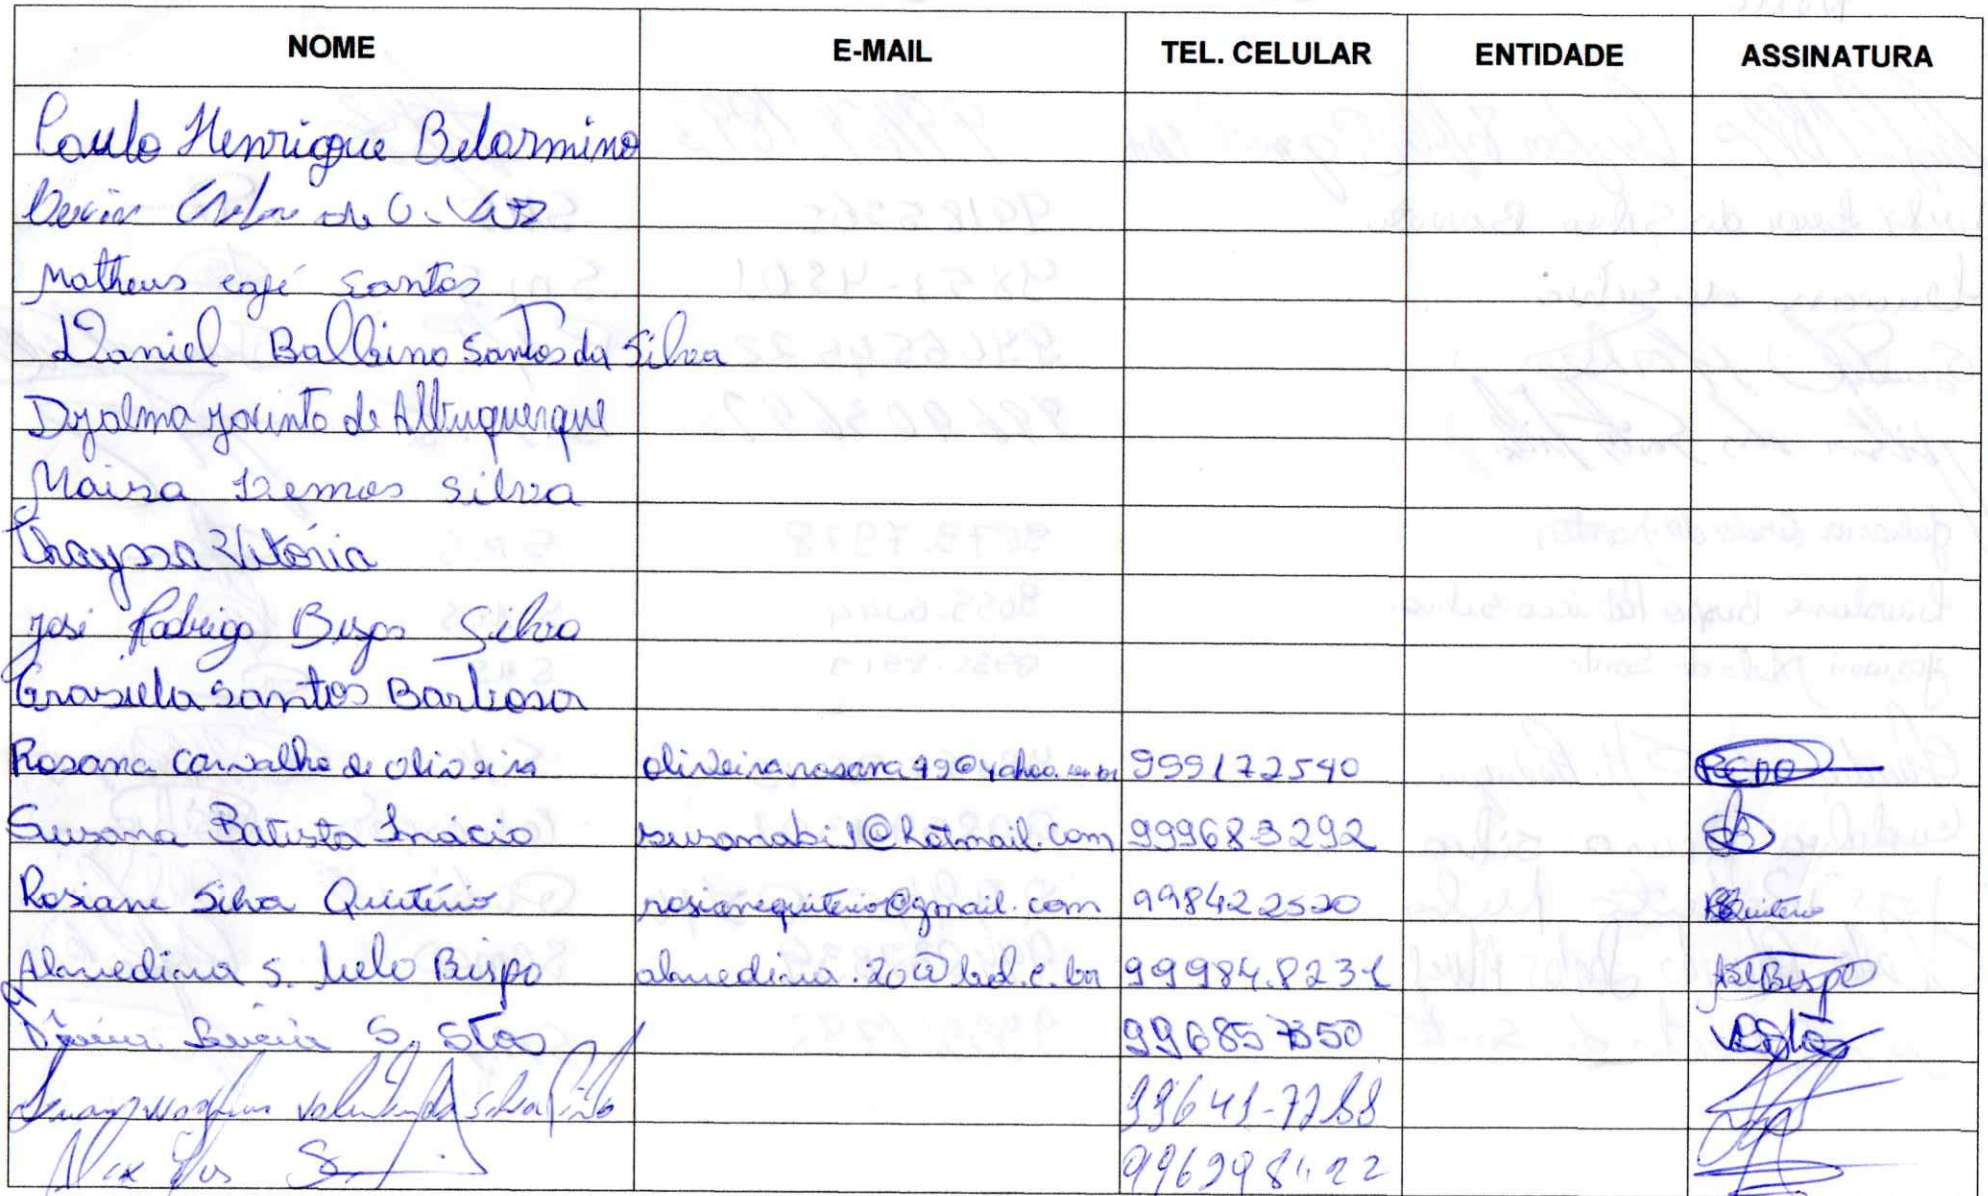 NOME E-MAIL TEL. CELULAR ENTIDADE ASSINATURA
Paulo Henrique Belarmino
de O. Vaz
Matheus café Santos
Daniel Balbino Santos da Silva
Djalma Jacinto de Albuquerque
Maisa Lemos Silva
Thayssa Vitória
José Rodrigo Bispo Silva
Grasiela Santos Barbosa
Rosana Carvalho de Oliveira oliveirarosana49@yahoo.com.br 999172540
Susana Batista Inácio susanabi1@hotmail.com 999683292
Rosiane Silva Quitério rosianequiterio@gmail.com 998422520 RSQuitério
Almedina S. Melo Bispo 99984.8231 ASMBispo
Lúcia S. Stos 996857350
da Silva 99641-7788
Alex dos S